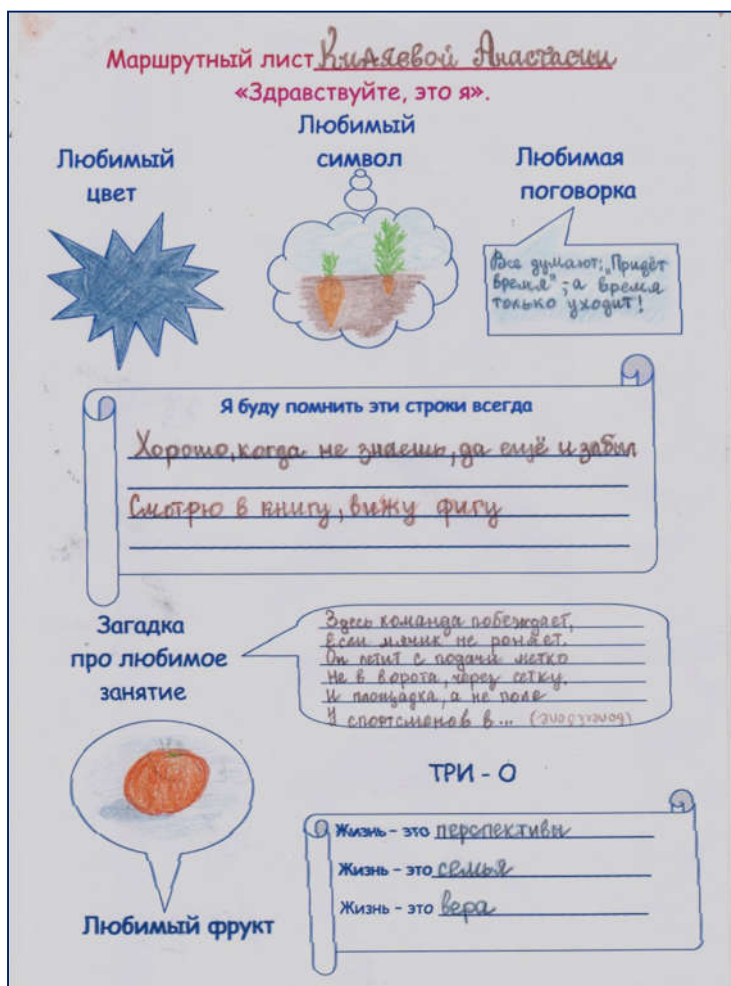 Маршрутный лист Княжевой Анастасии
«Здравствуйте, это я».
Любимый
цвет
Любимый
символ
Любимая
поговорка
Все думают: „Придёт
время“; а время
только уходит!
Я буду помнить эти строки всегда
Хорошо, когда не знаешь, да ещё и забыл
Смотрю в книгу, вижу фигу
Загадка
про любимое
занятие
Здесь команда побеждает,
если мячик не роняет.
Он летит с подачи метко
Не в ворота, через сетку.
И площадка, а не поле
У спортсменов в...
Любимый фрукт
ТРИ - О
Жизнь - это перспективы
Жизнь - это семья
Жизнь - это вера